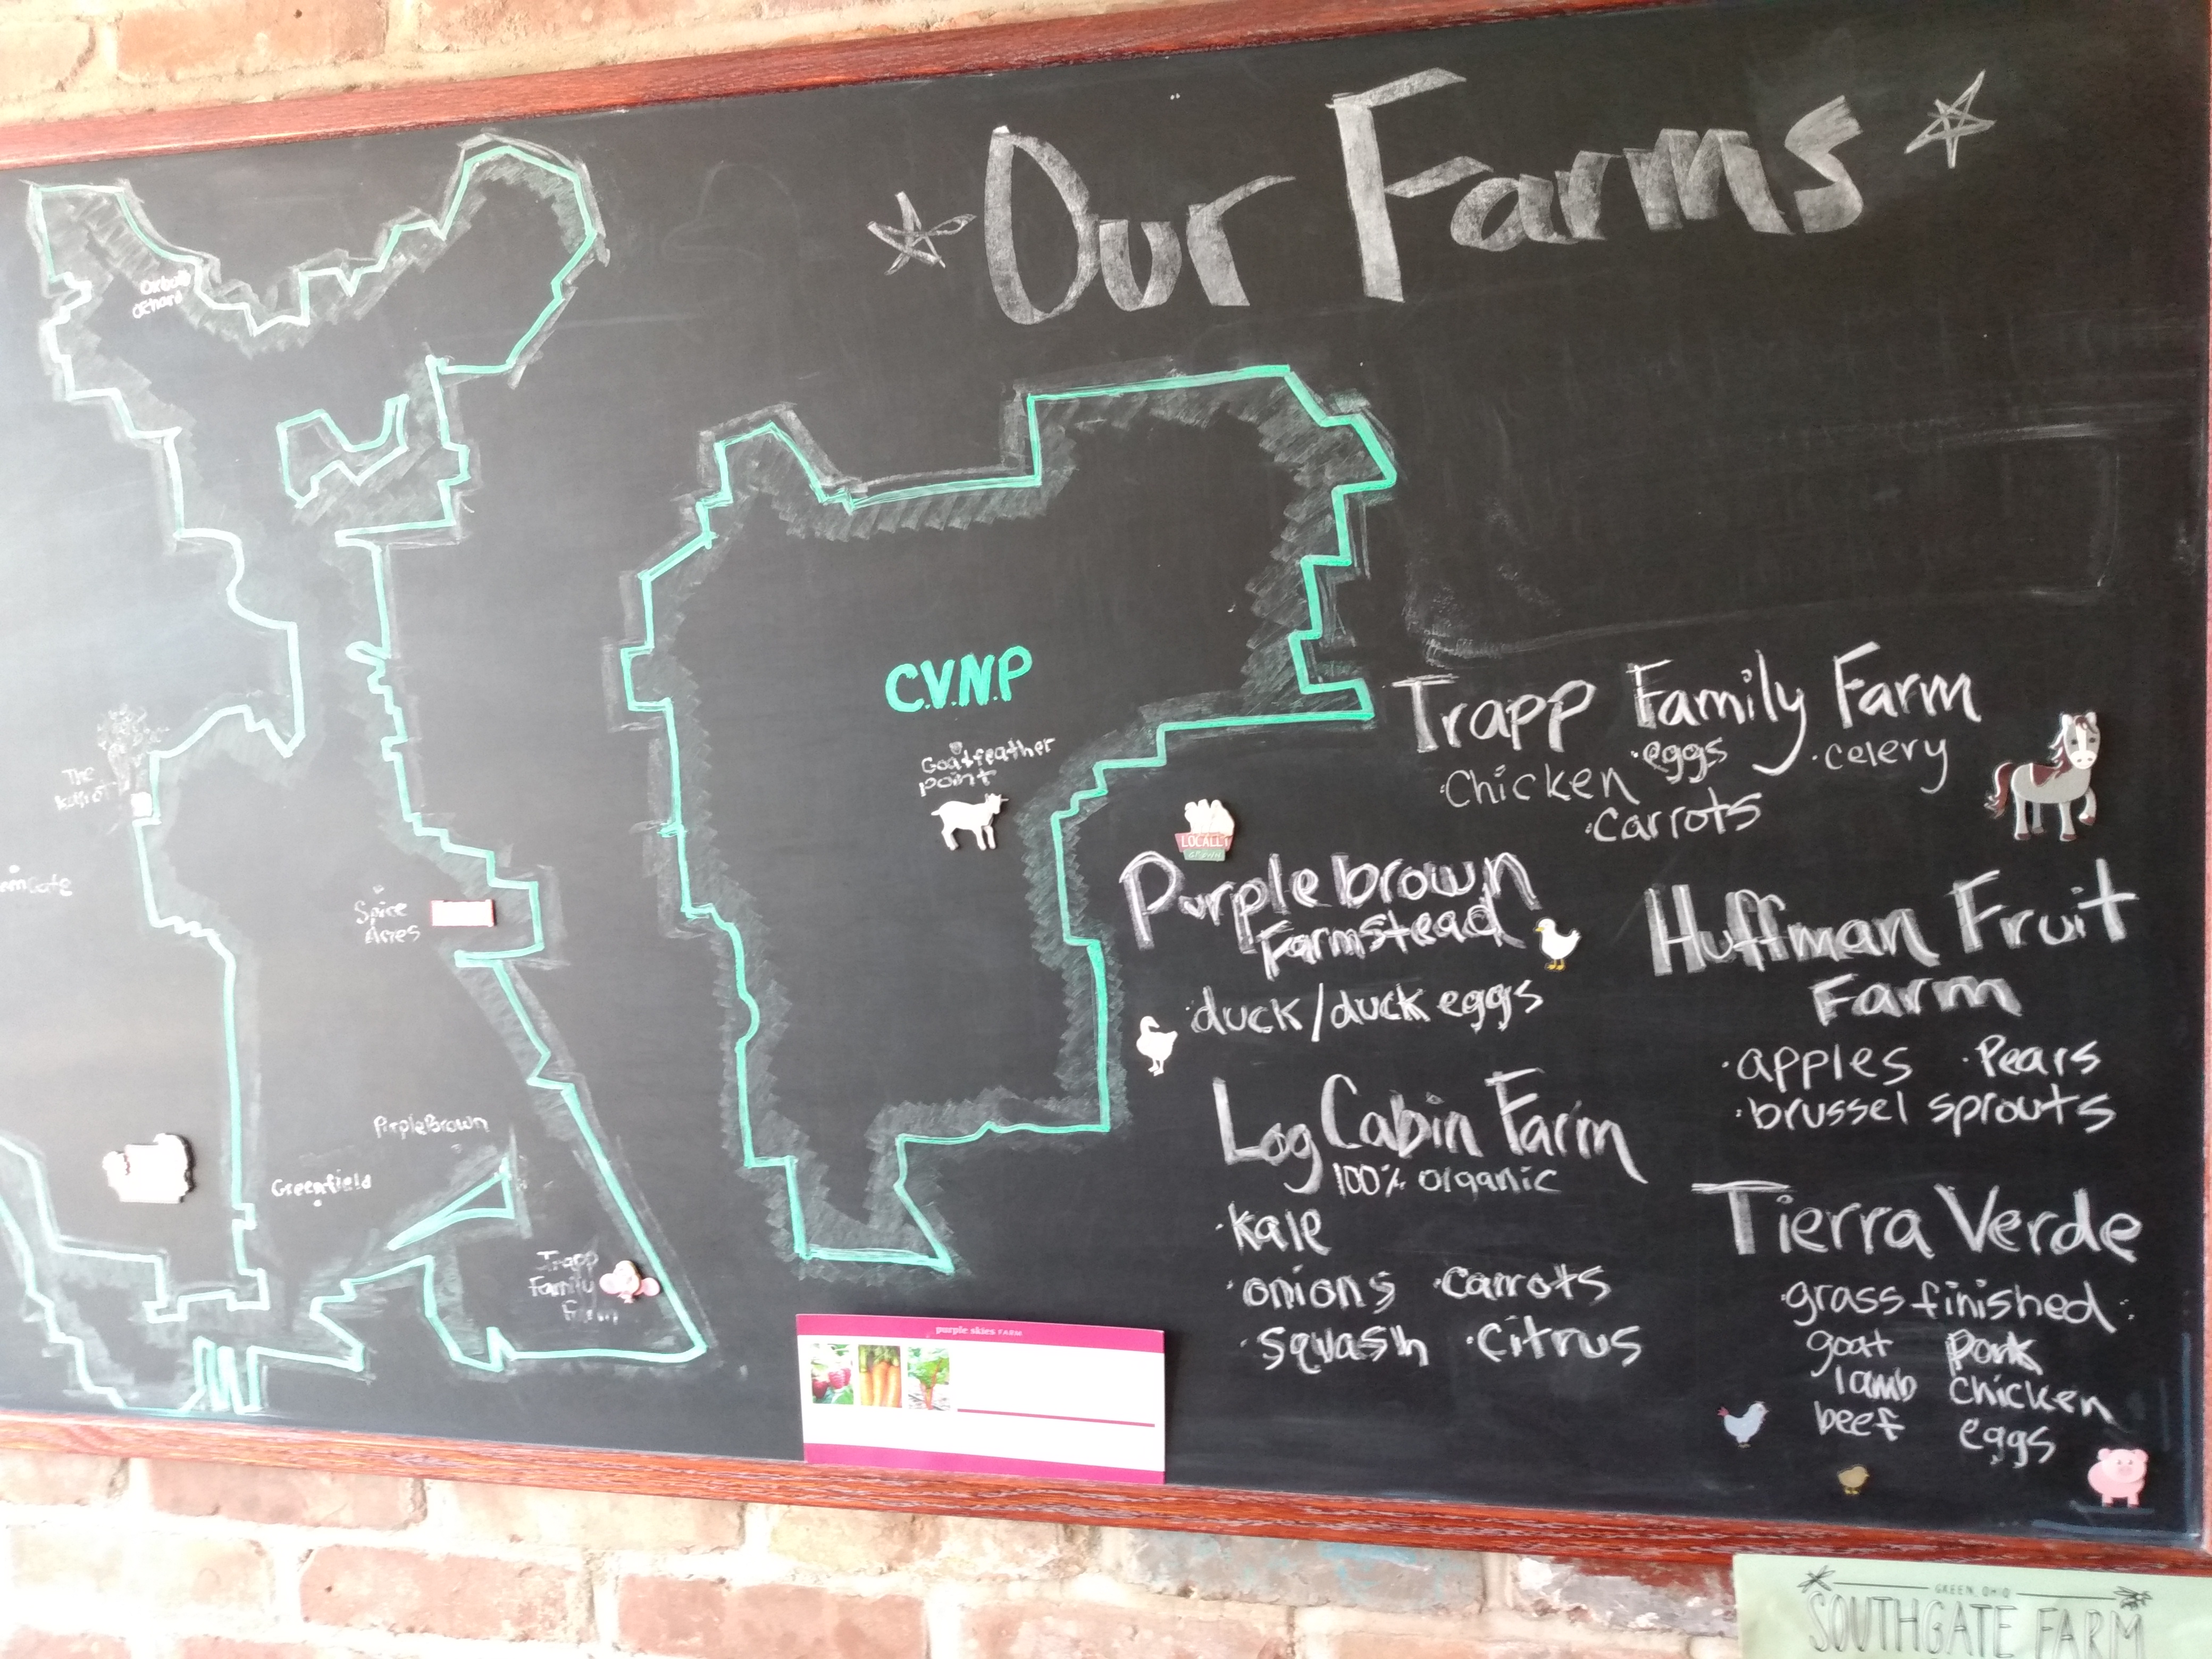 Our Farms
Orchard
C.V.N.P
Goatfeather
point
The
Spice
Acres
PurpleBrown
Greenfield
Trapp
Family
Farm
LOCALLY
GROWN
Trapp Family Farm
·eggs ·celery
·Chicken
·carrots
Purplebrown
Farmstead
·duck/duck eggs
Huffman Fruit
Farm
·apples ·Pears
·brussel sprouts
Log Cabin Farm
100% organic
·kale
·onions ·carrots
·squash ·citrus
Tierra Verde
·grass finished:
goat pork
lamb chicken
beef eggs
purple skies FARM
GREEN, OHIO
SOUTHGATE FARM